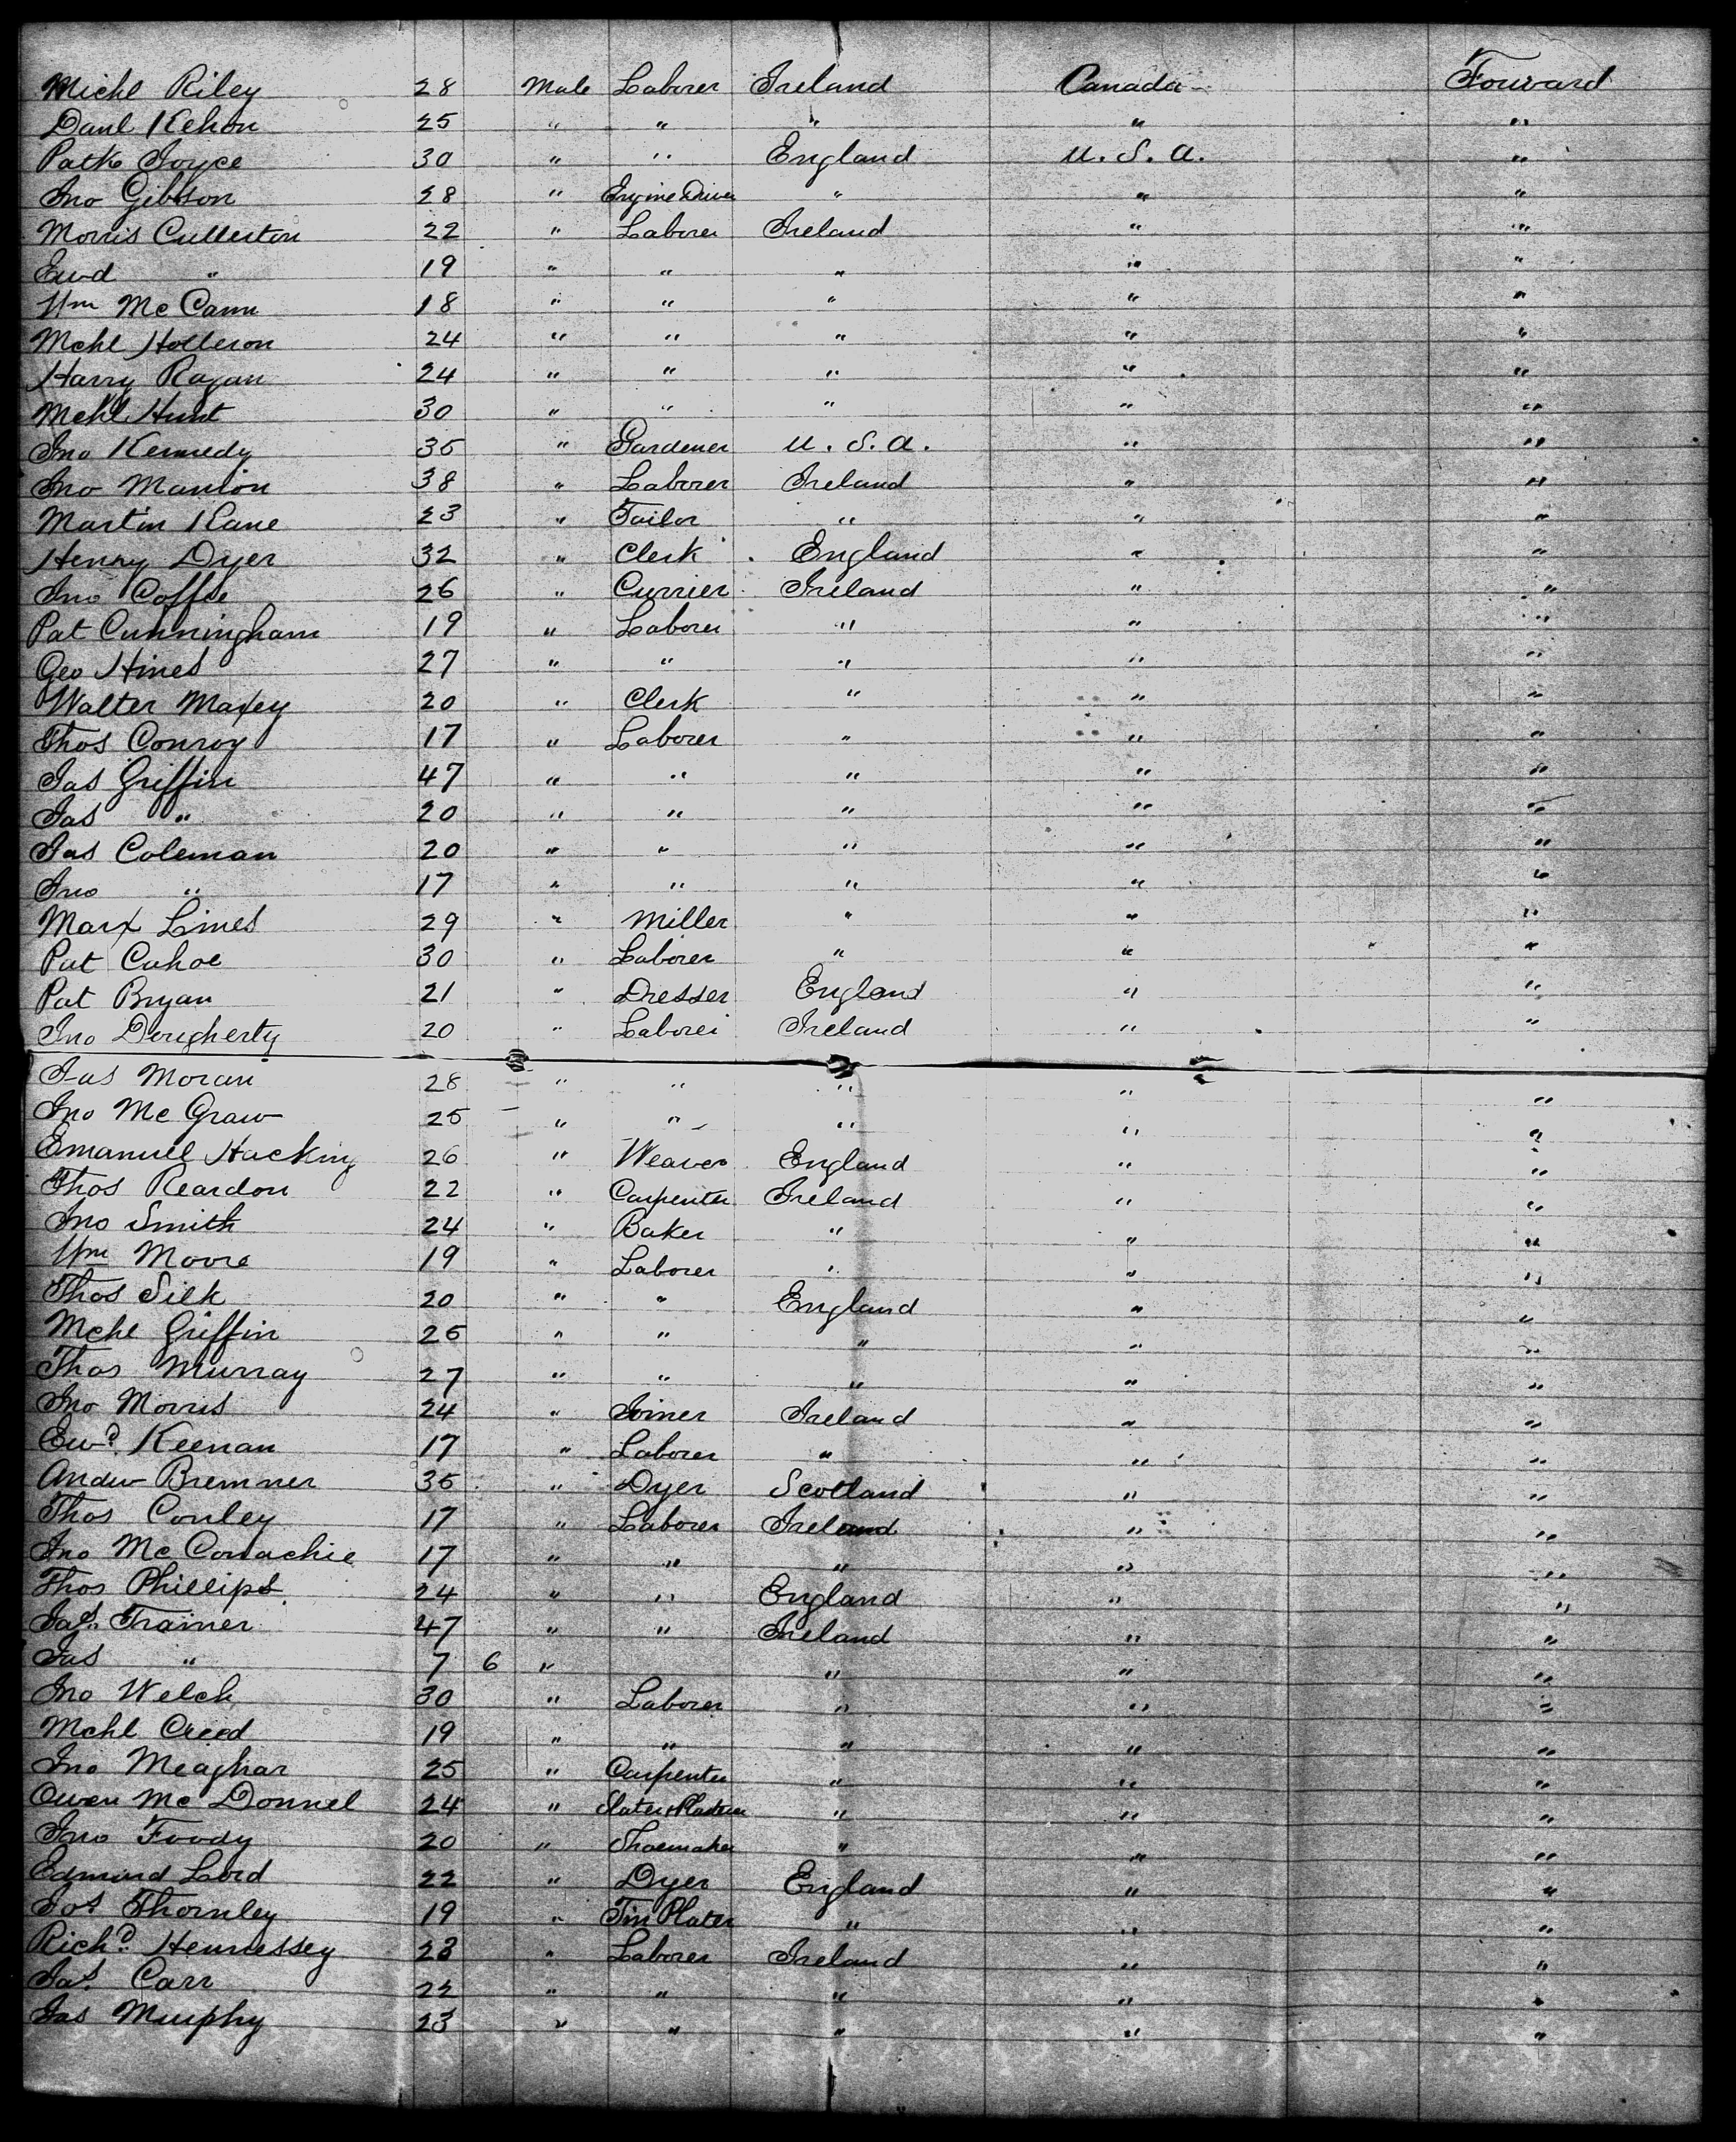 Michl Riley 28 Male Laborer Ireland Canada Forward
Danl Kehon 25 " " " " "
Patk Joyce 30 " " England U.S.A. "
Jno Gibson 28 " Engine Driver " " "
Morris Cullerton 22 " Laborer Ireland " "
Ewd " 19 " " " " "
Wm McCann 18 " " " " "
Mchl Holleron 24 " " " " "
Harry Ragan 24 " " " " "
Mchl Hunt 30 " " " " "
Jno Kennedy 35 " Gardener U.S.A. " "
Jno Manion 38 " Laborer Ireland " "
Martin Kane 23 " Tailor " " "
Henry Dyer 32 " Clerk England " "
Jno Coffee 26 " Currier Ireland " "
Pat Cunningham 19 " Laborer " " "
Geo Hines 27 " " " " "
Walter Maxey 20 " Clerk " " "
Thos Conroy 17 " Laborer " " "
Jas Griffin 47 " " " " "
Jas " 20 " " " " "
Jas Coleman 20 " " " " "
Jno " 17 " " " " "
Marx Lines 29 " Miller " " "
Pat Cahoe 30 " Laborer " " "
Pat Bryan 21 " Dresser England " "
Jno Dougherty 20 " Laborer Ireland " "
Jas Moran 28 " " " " "
Jno McGraw 25 " " " " "
Emanuel Hacking 26 " Weaver England " "
Thos Reardon 22 " Carpenter Ireland " "
Jno Smith 24 " Baker " " "
Wm Moore 19 " Laborer " " "
Thos Silk 20 " " England " "
Mchl Griffin 26 " " " " "
Thos Murray 27 " " " " "
Jno Morris 24 " Joiner Ireland " "
Ewd Keenan 17 " Laborer " " "
Andw Bremner 35 " Dyer Scotland " "
Thos Conley 17 " Laborer Ireland " "
Jno McConachie 17 " " " " "
Thos Phillips 24 " " England " "
Jas Trainer 47 " " Ireland " "
Jas " 7 6 " " " "
Jno Welch 30 " Laborer " " "
Mchl Creed 19 " " " " "
Jno Meaghar 25 " Carpenter " " "
Owen McDonnel 24 " Slater & Plasterer " " "
Jno Foody 20 " Shoemaker " " "
Edmund Lord 22 " Dyer England " "
Jos Thornley 19 " Tin Plater " " "
Richd Hennessey 23 " Laborer Ireland " "
Jas Carr 22 " " " " "
Jas Murphy 23 " " " " "